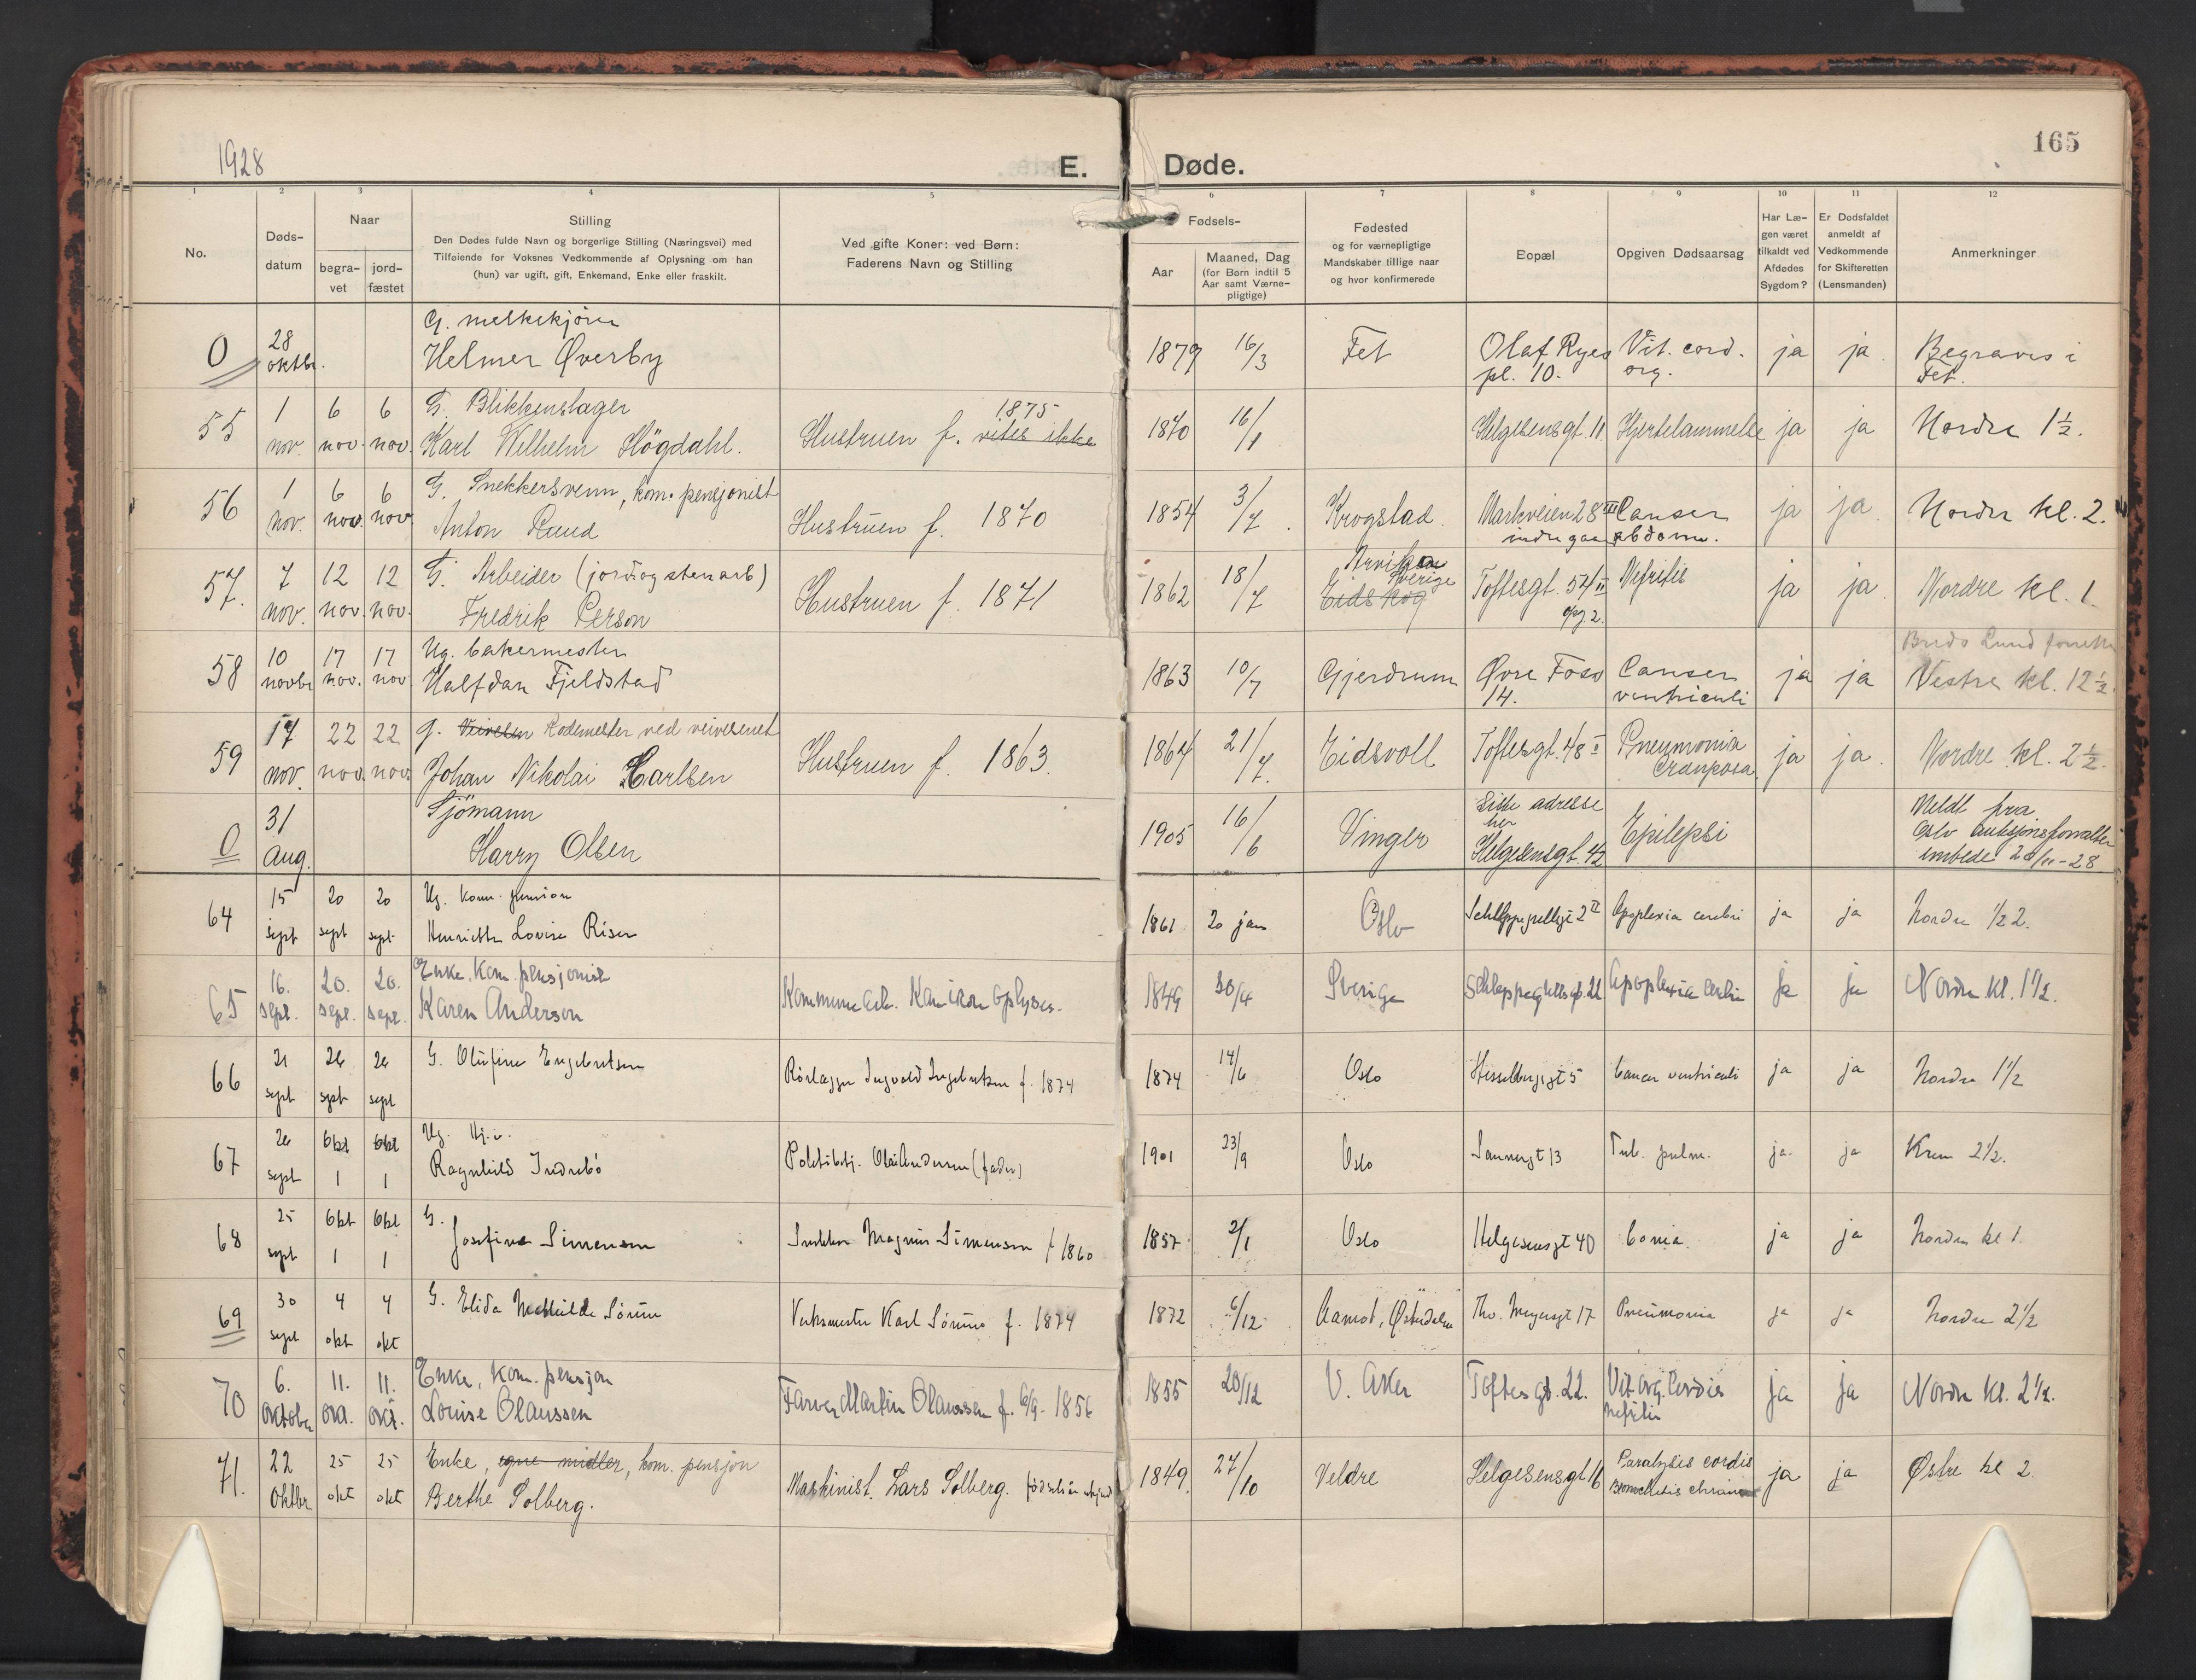 1928
E. Døde.
165
1 2 3 4 5 6 7 8 9 10 11 12
No.
Døds-
datum
Naar
begra-
vet
jord-
fæstet
Stilling
Den Dødes fulde Navn og borgerlige Stilling (Næringsvei) med
Tilføiende for Voksnes Vedkommende af Oplysning om han
(hun) var ugift, gift, Enkemand, Enke eller fraskilt.
Ved gifte Koner: ved Børn:
Faderens Navn og Stilling
Fødsels-
Aar
Maaned, Dag
(for Børn indtil 5
Aar samt Værne-
pligtige)
Fødested
og for værnepligtige
Mandskaber tillige naar
og hvor konfirmerede
Bopæl
Opgiven Dødsaarsag
Har Læ-
gen været
tilkaldt ved
Afdødes
Sygdom?
Er Dødsfaldet
anmeldt af
Vedkommende
for Skifteretten
(Lensmanden)
Anmerkninger
G. melkekjører
0 28 oktbr. Helmer Øverby 1879 16/3 Fet Olaf Ryes pl. 10. Vit. cord. org. ja ja Begraves i Fet.
G. Blikkenslager
55 1 nov. 6 nov. 6 nov. Karl Wilhelm Högdahl. Hustruen f. vites ikke 1875 1870 16/1 Helgesensgt. 11 Hjertelammelse ja ja Nordre 1½.
G. Snekkersvenn, kom. pensjonist
56 1 nov. 6 nov. 6 nov. Anton Ruud Hustruen f. 1870 1854 3/7 Krogstad Markveien 28 III Canser abdom. ja ja Nordre kl. 2.
G. Arbeider (jord og stenarb)
57. 7 nov. 12 nov. 12 nov. Fredrik Person Hustruen f. 1871 1862 18/7 Eidskog Arvika Sverige Toftesgt. 52 II opg. 2. Nefritis ja ja Nordre kl. 1.
Ug. bakermester
58 10 novbr 17 nov. 17 nov Halfdan Fjeldstad 1863 10/7 Gjerdrum Øvre Foss 14. Canser ventriculi ja ja Vestre kl. 12½
g. Veivesen Rodemester ved veivesenet
59 17 nov. 22 nov. 22 nov. Johan Nikolai Carlsen Hustruen f. 1863. 1864 21/7. Eidsvoll Toftesgt. 48 I Pneumonia crouposa ja ja Nordre kl. 2½.
Sjömann
0 31 aug. Harry Olsen 1905 16/6 Vinger Siste adresse her Helgesensgt. 42 Epilepsi Meldt fra Oslo auksjonsforvalter embede 28/11-28
Ug. kom. pension
64 15 sept 20 sept 20 sept Henriette Lovise Riser 1861 20 jan Oslo Schleppegrellsgt 2 II Apoplexia cerebri ja ja Nordre ½2.
Enke. Kom. pensjonist
65 16. sept. 20. sept. 20. sept. Karen Anderson Kommunearb. Kan ikke oplyses. 1849 30/4 Sverige Schleppegrellsgt. 22 Apoplexia cerebri ja ja Nordre kl. 1½.
66 21 sept 26 sept 26 sept G. Olufine Engebretsen Rörlegger Ingvald Engebretsen f. 1874 1874 14/6 Oslo Hesselbergsgt 5 Cancer ventriculi ja ja Nordre 1½
Ug. Hj.v.
67 26 sept Okt 1 Okt 1 Ragnhild Indrebö Politibetj. Olai Andersen (fader) 1901 23/9 Oslo Sannergt 13 Tub. pulm. ja ja Krem 2½.
68 25 sept Okt 1 Okt 1 G. Josefine Simensen Snekker Magnus Simensen f 1860 1857 2/1 Oslo Helgesensgt 40 Coma. ja ja Nordre kl 1.
69 30 sept 4 okt 4 okt G. Elida Mathilde Sörum Verksmester Karl Sörum f. 1874 1872 6/12 Aamot, Østerdalen Tho. Meyersgt 17 Pneumonia ja ja Nordre 2½
Enke, kom. pensjon
70 6. oktober 11. okt. 11. okt. Louise Olaussen Farver Martin Olaussen f. 6/9-1856 1855 20/12 V. Aker Toftesgt. 22. Vit. org. Cordis Nefritis ja ja Nordre kl. 2½.
Enke, egne midler, kom. pensjon
71. 22 Oktbr 25 okt 25 okt Berthe Solberg. Maskinist. Lars Solberg. 1849. 27/10 Veldre Helgesensgt 16 Paralysis cordis Bronchitis chronica ja ja Østre kl 2.